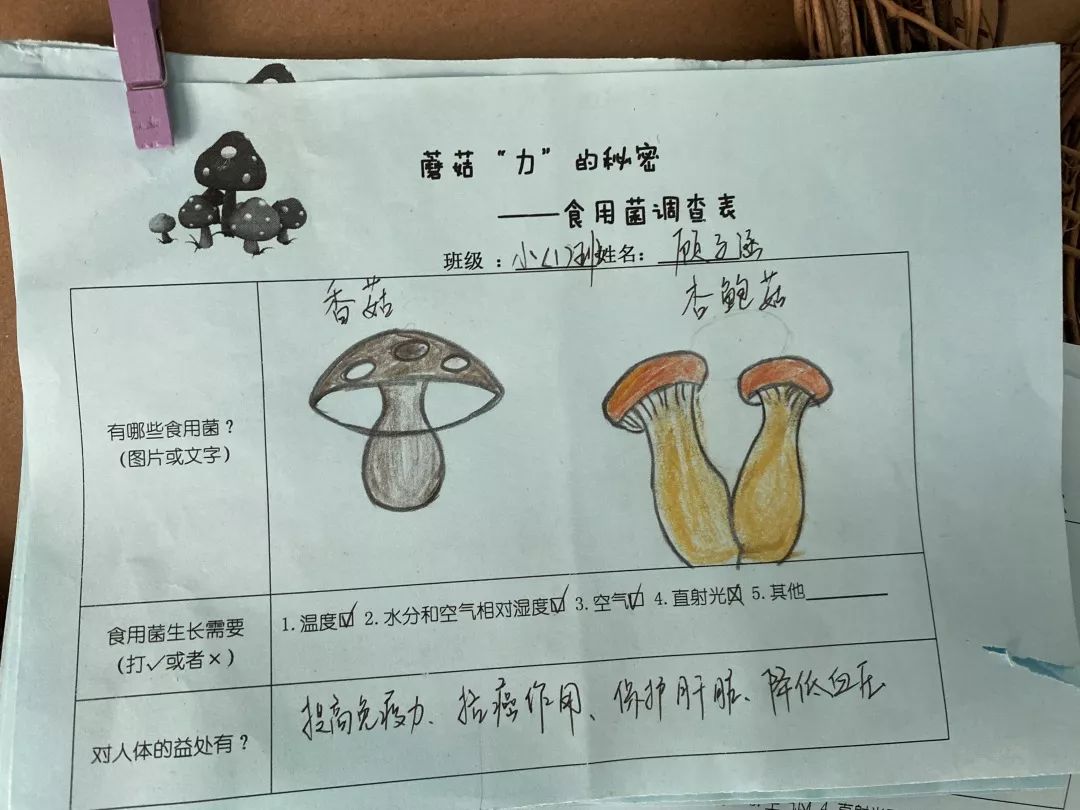 蘑菇“力”的秘密
——食用菌调查表
班级：小(1)班姓名：顾立涵
香菇 杏鲍菇
有哪些食用菌？
(图片或文字)
食用菌生长需要
(打✓或者×)
1.温度☑ 2.水分和空气相对湿度☑ 3.空气☑ 4.直射光☒ 5.其他______
对人体的益处有？
提高免疫力、抗癌作用、保护肝脏、降低血压